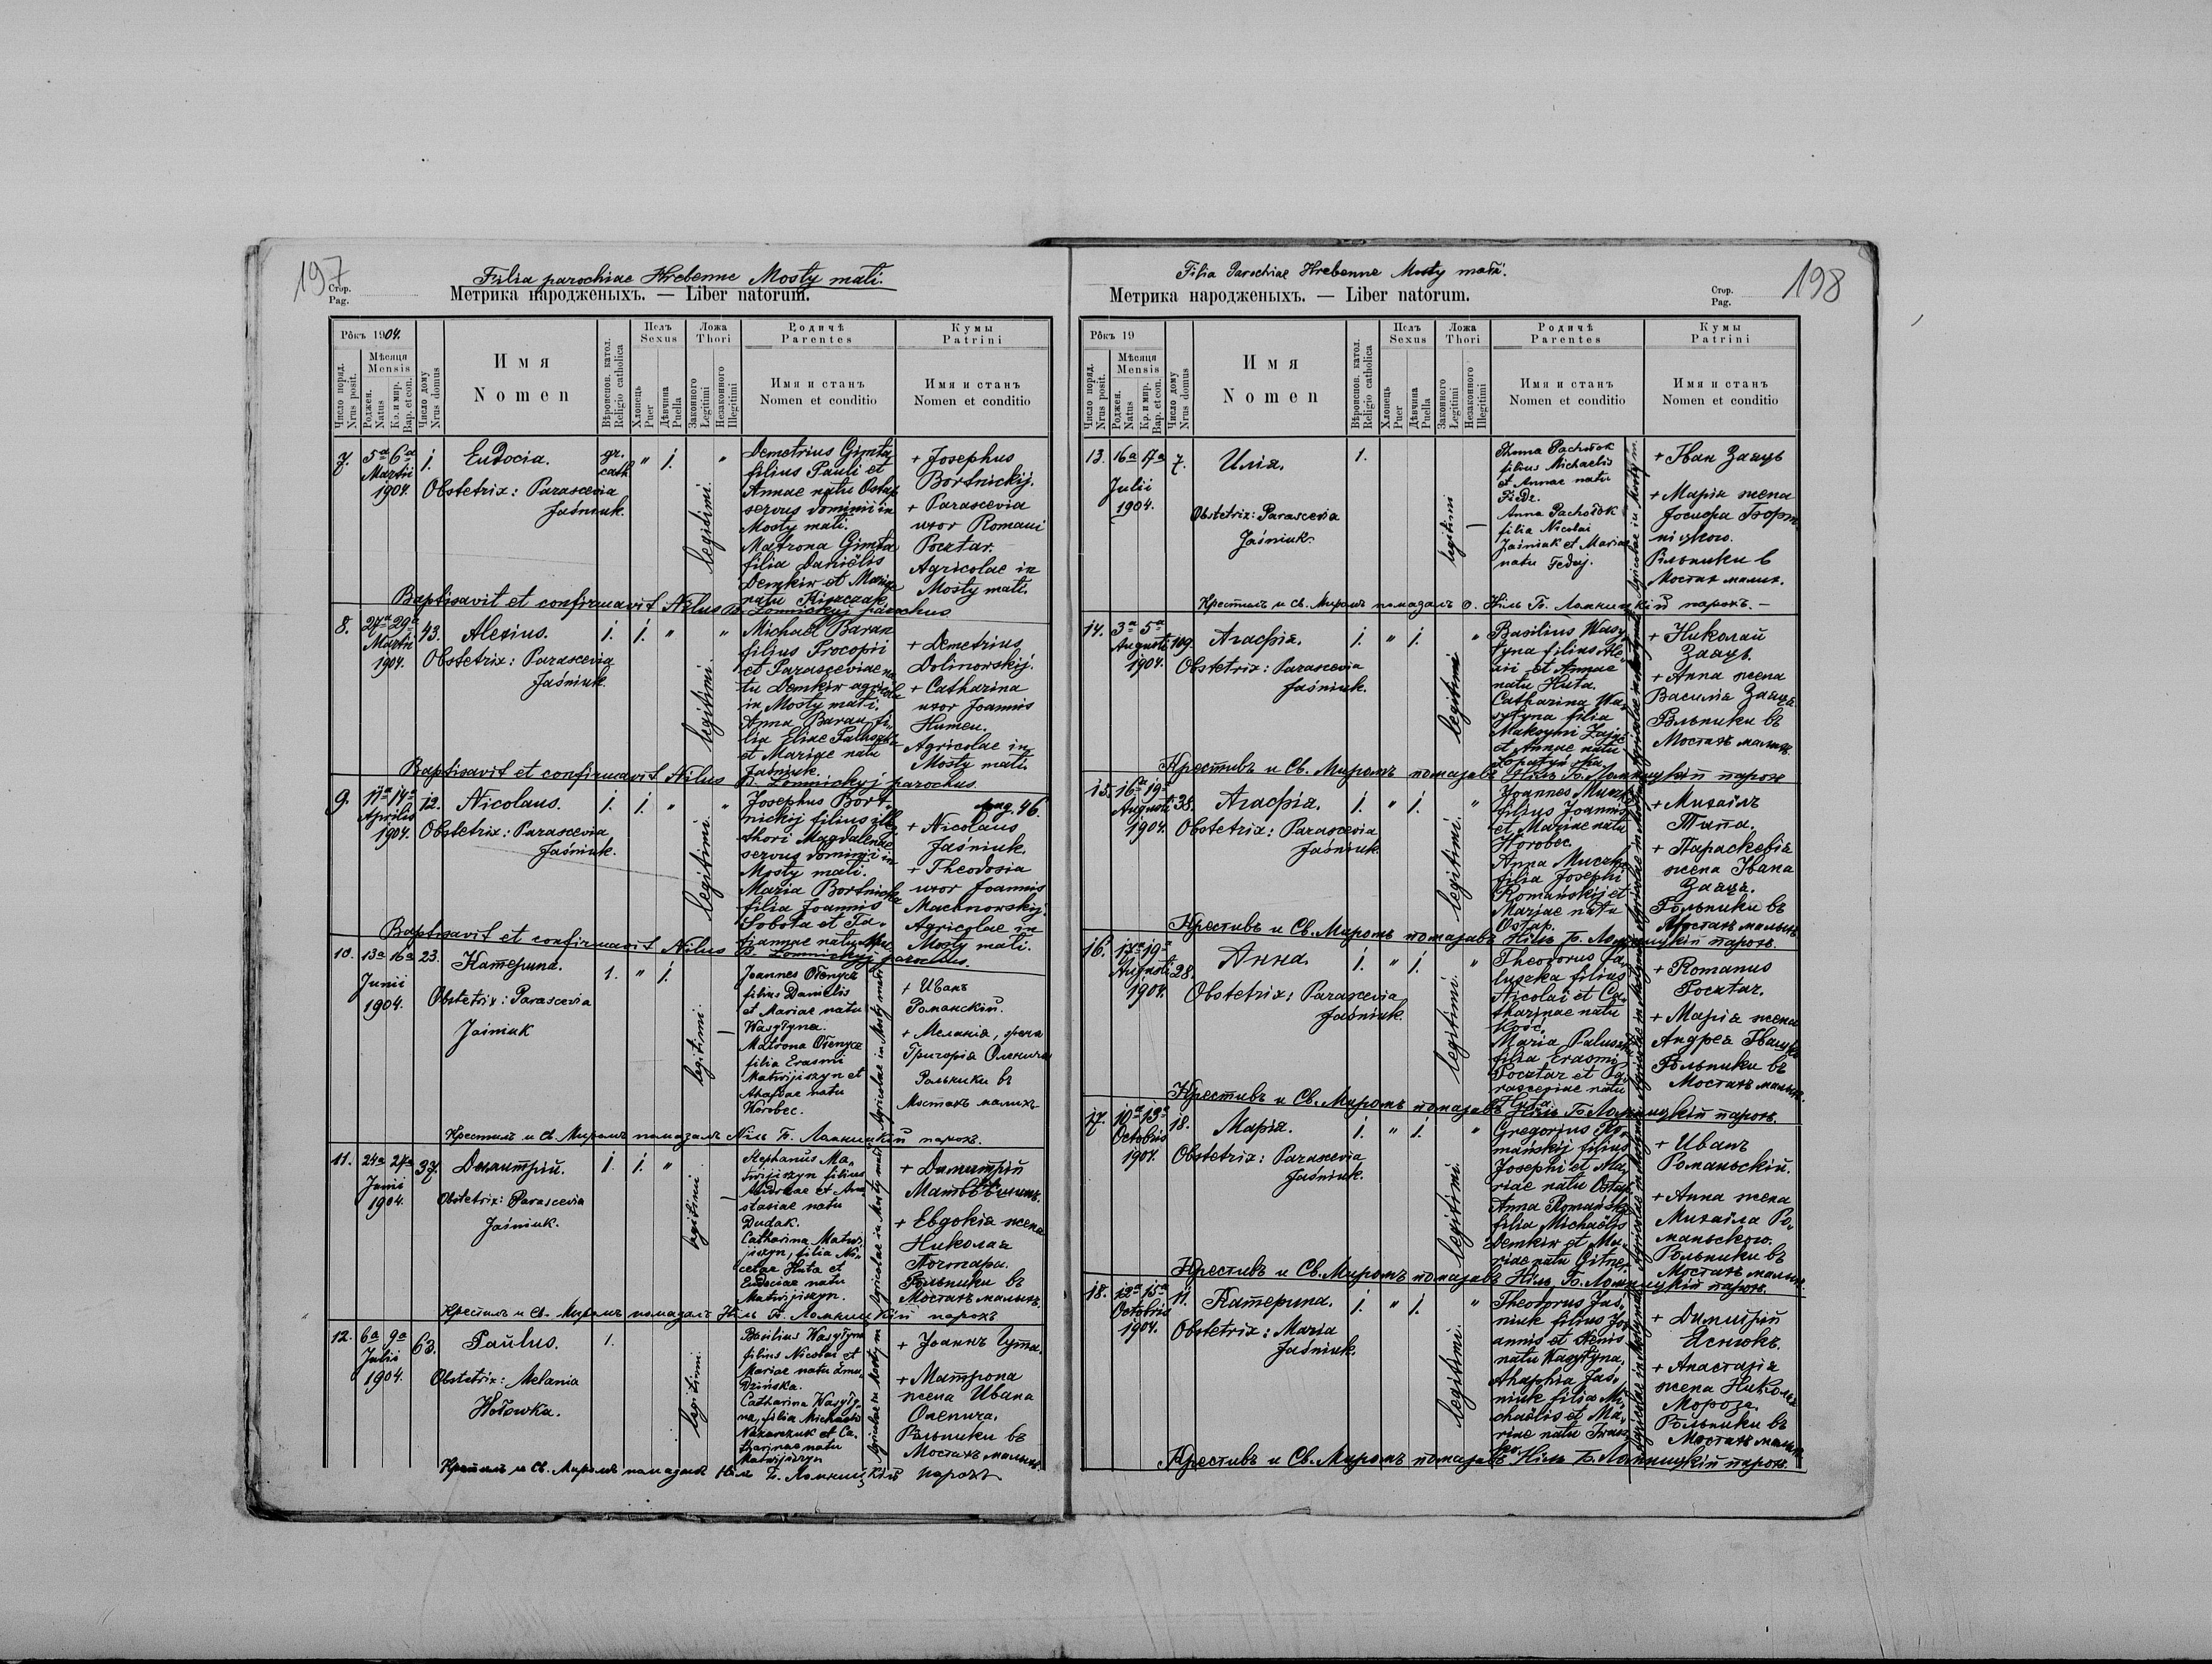 197
Стор.
Pag.
Filia parochiae Hrebenne Mosty mati.
Метрика народженыхъ. — Liber natorum.
Рôкъ 1904.
Число поряд.
Nrus posit.
Мѣсяця
Mensis
Роджен.
Natus
Кр. и мир.
Bap. et con.
Число дому
Nrus domus
Имя
Nomen
Вѣроиспов. катол.
Religio catholica
Полъ
Sexus
Хлопець
Puer
Дѣвчина
Puella
Ложа
Thori
Законного
Legitimi
Незаконного
Illegitimi
Родичѣ
Parentes
Имя и станъ
Nomen et conditio
Кумы
Patrini
Имя и станъ
Nomen et conditio
7. 5a 6a
Martii
1904.
1.
Eudocia.
Obstetrix: Parascevia
Jaśniuk.
gr.
cath
" 1. "
legitimi.
Demetrius Gimta
filius Pauli et
Annae natu Ostap
servus dominii in
Mosty mati.
Matrona Gimta
filia Daniëlis
Demkiw et Mariae
natu
+ Josephus
Bortnickij.
+ Parascevia
uxor Romani
Pocztar.
Agricolae in
Mosty mati.
Baptisavit et confirmavit Nilus B. Lomnickyj parochus
8. 27a 29a
Martii
1904.
43.
Alexius.
Obstetrix: Parascevia
Jaśniuk.
1. 1. " "
legitimi.
Michaël Baran
filius Procopii
et Parasceviae na
tu Demkiw agricola
in Mosty mati.
Anna Baran fi
lia Eliae Paluszka
et Mariae natu
Jaśniuk.
+ Demetrius
Dolinowskij.
+ Catharina
uxor Joannis
Humen.
Agricolae in
Mosty mati.
Baptisavit et confirmavit Nilus B. Lomnickyj parochus.
9. 11a 14a
Aprilis
1904.
12.
Nicolaus.
Obstetrix: Parascevia
Jaśniuk.
1. 1. " "
legitimi.
Josephus Bort-
nickij filius illeg.
thori Magdalenae
servus dominii in
Mosty mati.
Maria Bortnicka
filia Joannis
Sobota et Ta-
tiannae natu
pag. 46.
+ Nicolaus
Jaśniuk.
+ Theodosia
uxor Joannis
Machnowskij.
Agricolae in
Mosty mati.
Baptisavit et confirmavit Nilus B. Lomnickyj parochus.
10. 13a 16a
Junii
1904.
23.
Катерина.
Obstetrix: Parascevia
Jaśniuk
1. " 1.
legitimi.
Joannes Ołenycz
filius Danielis
et Mariae natu
Wasyłyna.
Matrona Ołenycz
filia Erasmi
Matwijiszyn et
Ahafiae natu
Horobec.
Agricolae in Mosty małe
+ Иванъ
Романскій.
+ Меланія, жена
Григорія Оленича
Рольники въ
Мостахъ малихъ
Крестилъ и св. Миромъ помазалъ Ніль Б. Ломницкій парох.
11. 24a 27a
Junii
1904.
37.
Димитрій.
Obstetrix: Parascevia
Jaśniuk.
1. 1. "
legitimi
Stephanus Ma-
twijiszyn filius
Andreae et Ana-
stasiae natu
Dudak.
Catharina Matwi-
jiszyn, filia Ni-
cetae Huta et
Eudociae natu
Matwijiszyn.
Agricolae in Mosty małe
+ Димитрій
+ Евдокія жена
Николая
Почтара.
Рольники въ
Мостахъ малыхъ.
Крестилъ и Св. Миромъ помазалъ Ніль Б. Ломницкій парохъ
12. 6a 9a
Julii
1904.
63.
Paulus.
Obstetrix: Melania
Hołowka.
1.
legitimi.
Basilius Wasyłyna
filius Nicolai et
Mariae natu Żmu-
dzińska.
Catharina Wasyły-
na, filia Michaelis
Nazarczuk et Ca-
tharinae natu
Matwijiszyn
Agricolae in Mosty m
+ Іоаннъ Гута.
+ Матрона
жена Ивана
Оленича.
Рольники въ
Мостахъ малыхъ.
Крестилъ и Св. Миромъ помазалъ Ніль Б. Ломницкій парохъ
198
Стор.
Pag.
Filia Parochiae Hrebenne Mosty małe.
Метрика народженыхъ. — Liber natorum.
Рôкъ 19
Число поряд.
Nrus posit.
Мѣсяця
Mensis
Роджен.
Natus
Кр. и мир.
Bap. et con.
Число дому
Nrus domus
Имя
Nomen
Вѣроиспов. катол.
Religio catholica
Полъ
Sexus
Хлопець
Puer
Дѣвчина
Puella
Ложа
Thori
Законного
Legitimi
Незаконного
Illegitimi
Родичѣ
Parentes
Имя и станъ
Nomen et conditio
Кумы
Patrini
Имя и станъ
Nomen et conditio
13. 16a 17a
Julii
1904.
7.
Илія.
Obstetrix: Parascevia
Jaśniuk.
1.
legitimi
Pachołok
filius Michaelis
et Annae natu
Fedz.
Anna Pachołok
filia Nicolai
Jaśniuk et Mariae
natu Fedyj.
Agricolae in Mosty m.
+ Іван Заяць
+ Марія жена
Госифа Борт
ніцкого.
Рольники в
Мостах малих.
Крестилъ и св. Миромъ помазалъ о. Ніль Б. Ломницкій парохъ. —
14. 3a 5a
Augusti
1904.
109.
Агафія.
Obstetrix: Parascevia
Jaśniuk.
1. " 1. "
legitimi
Basilius Wasy-
łyna filius Ale-
xii et Annae
natu Huta.
Catharina Wa-
syłyna filia
Maksymi Zając
et Annae natu
+ Николай
Заяць.
+ Анна жена
Василія Заяця
Рôльники въ
Мостахъ малыхъ.
Крестивъ и Св. Миромъ помазавъ Ніль Б. Ломницкій парох
15. 16a 19a
Augusti
1904.
35.
Агафія.
Obstetrix: Parascevia
Jaśniuk.
1. " 1. "
legitimi.
Joannes Muczka
filius Joannis
et Mariae natu
Horobec.
Anna Muczka
filia Josephi
Romańskij et
Mariae natu
Ostap.
+ Михаіль
Типа.
+ Параскевія
жена Івана
Заяця.
Рôльники въ
Мостахъ малыхъ.
Крестивъ и Св. Миромъ помазавъ Ніль Б. Ломницкій парох.
16. 17a 19a
Augusti
1904.
28.
Анна.
Obstetrix: Parascevia
Jaśniuk.
1. " 1. "
legitimi.
Theodorus Pa-
luszka filius
Nicolai et Ca-
tharinae natu
Kość.
Maria Paluszka
filia Erasmi
Pocztar et Pa-
rasceviae natu
Huta.
+ Romanus
Pocztar.
+ Марія жена
Андрея
Рôльники въ
Мостахъ малыхъ.
Крестивъ и Св. Миромъ помазавъ Ніль Б. Ломницкій парох.
17. 10a 13a
Octobris
1904.
18.
Марія.
Obstetrix: Parascevia
Jaśniuk.
1. " 1. "
legitimi.
Gregorius Ro-
mańskij filius
Josephi et Ma-
riae natu Ostap.
Anna Romańska
filia Michaëlis
Demkiw et Ma-
riae natu
+ Иванъ
Романьскій.
+ Анна жена
Михаіла Ро-
маньского.
Рôльники въ
Мостахъ малыхъ.
Крестивъ и Св. Миромъ помазавъ Ніль Б. Ломницкій парох.
18. 12a 15a
Octobris
1904.
11.
Катерина.
Obstetrix: Maria
Jaśniuk.
1. " 1. "
legitimi.
Theodorus Jaś-
niuk filius Jo-
annis et
natu Wasyłyna,
Ahaphia Jaś-
niuk filia Mi-
chaëlis et Ma-
riae natu
+ Димитрій
Яснюкъ.
+ Анастазія
жена Николая
Мороза.
Рôльники въ
Мостахъ малыхъ
Крестивъ и Св. Миромъ помазавъ Ніль Б. Ломницкій парох.